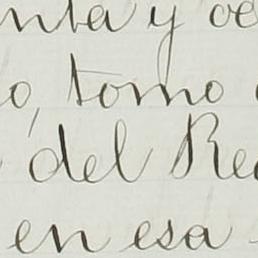 nta y oc
o, tomo
del Re
en esa